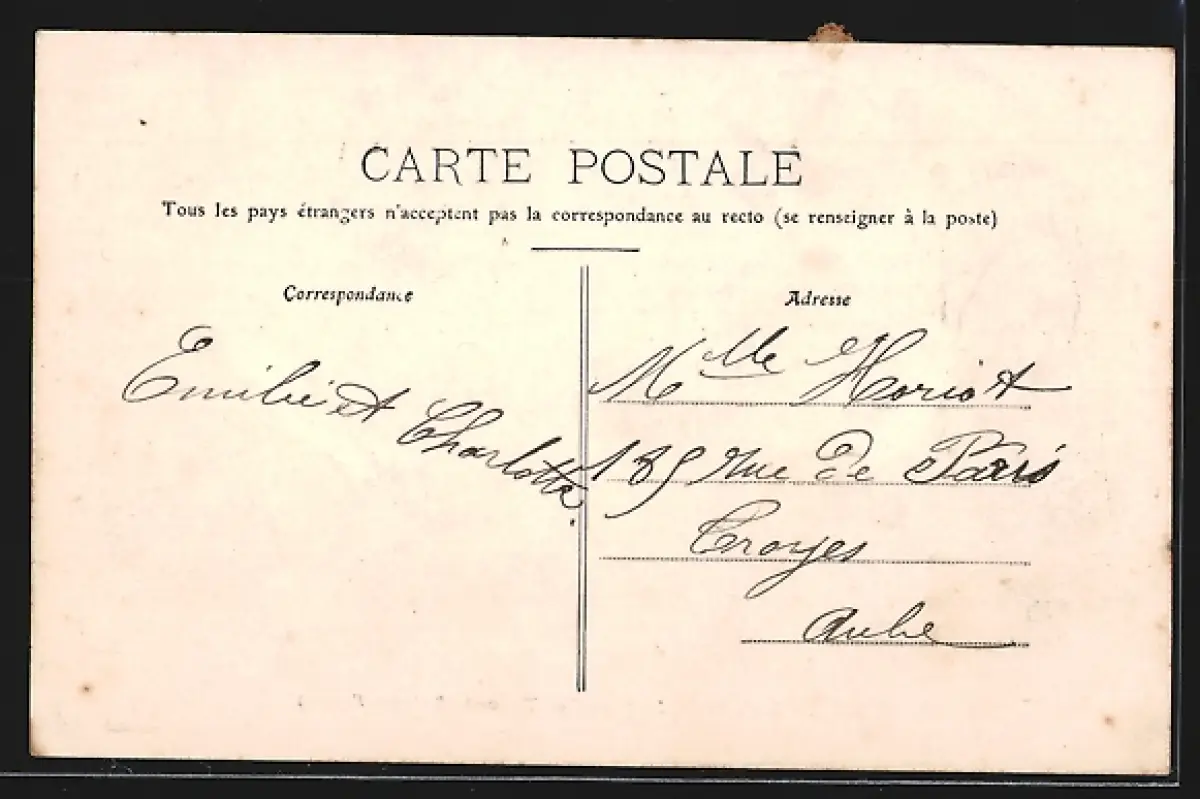 CARTE POSTALE
Tous les pays étrangers n'acceptent pas la correspondance au recto (se renseigner à la poste)
Correspondance
Emilie et Charlotte.
Adresse
Mlle Horiot
189 rue de Paris
Troyes
Aube